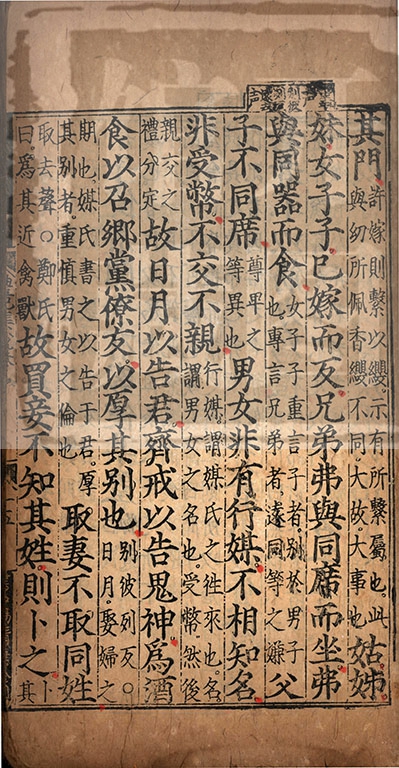 其門許嫁則繫以纓。示有所繫屬也。此與幼所佩香纓不同。大故。大事也。姑姊
妹女子子已嫁而反兄弟弗與同席而坐弗
與同器而食女子子重言子者。别於男子也。專言兄弟者。遠同等之嫌父
子不同席尊卑之等異也男女非有行媒。不相知名
非受幣不交不親行媒。謂媒氏之往來也。名謂男女之名也。受幣然後
親交之禮分定故日月以告君齊戒以告鬼神為酒
食以召鄉黨僚友。以厚其别也别彼列反○日月。娶婦之
期也。媒氏書之以告于君。厚其别者。重慎男女之倫也取妻不取同姓
取去聲○鄭氏曰。為其近禽獸故買妾不知其姓。則卜之卜其